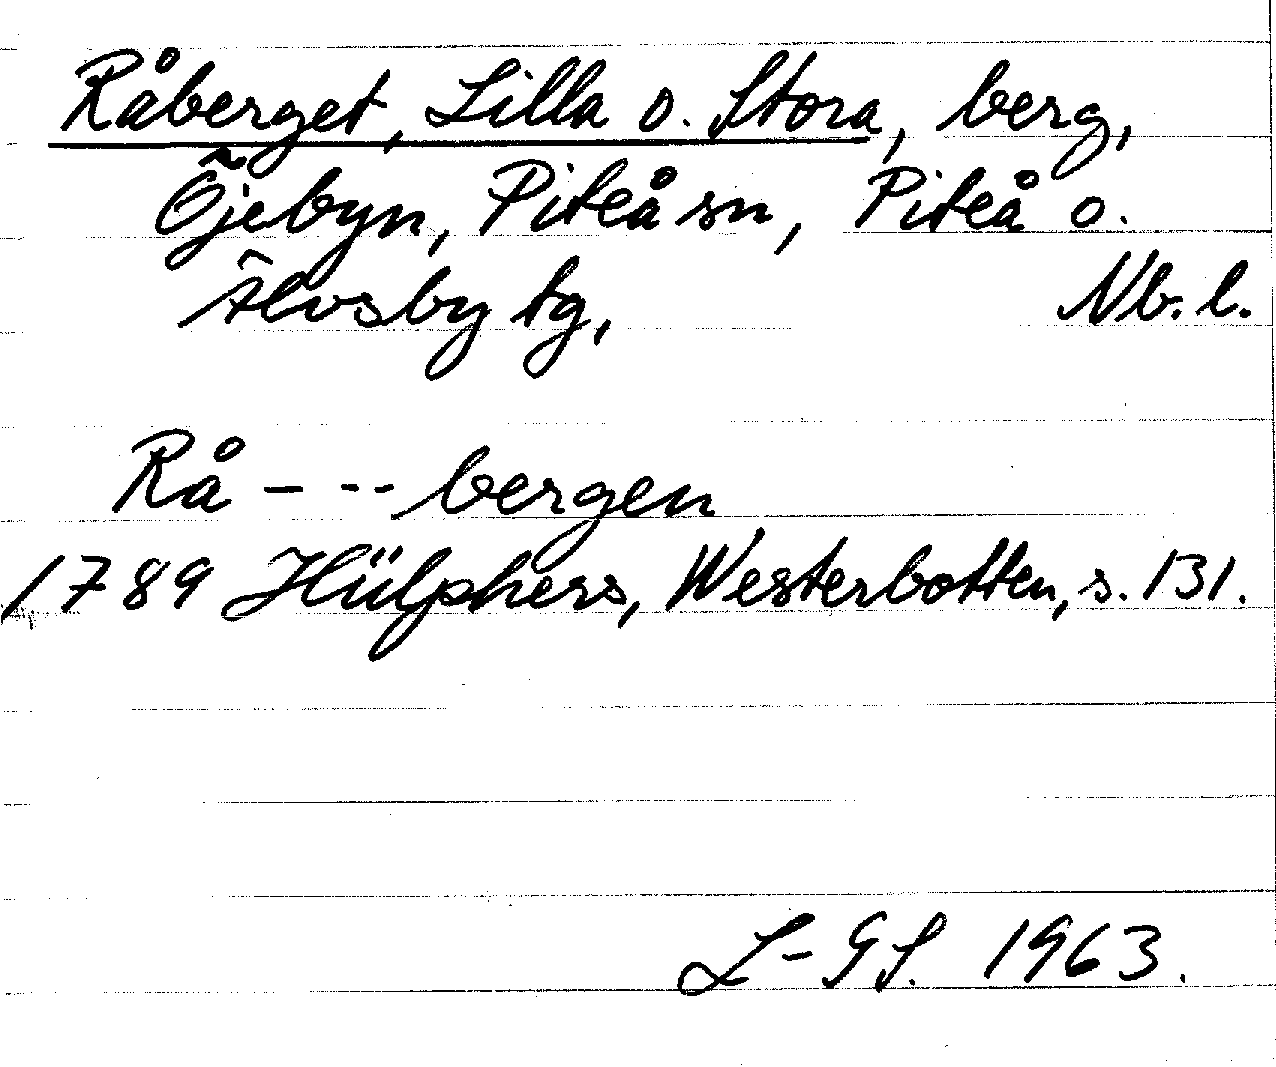 Råberget, Lilla o. Stora, berg,
Öjebyn, Piteå sn, Piteå o.
Älvsby tg, Nb. l.
Rå - - - bergen
1789 Hülphers, Westerbotten, s. 131.
L-GS. 1963.